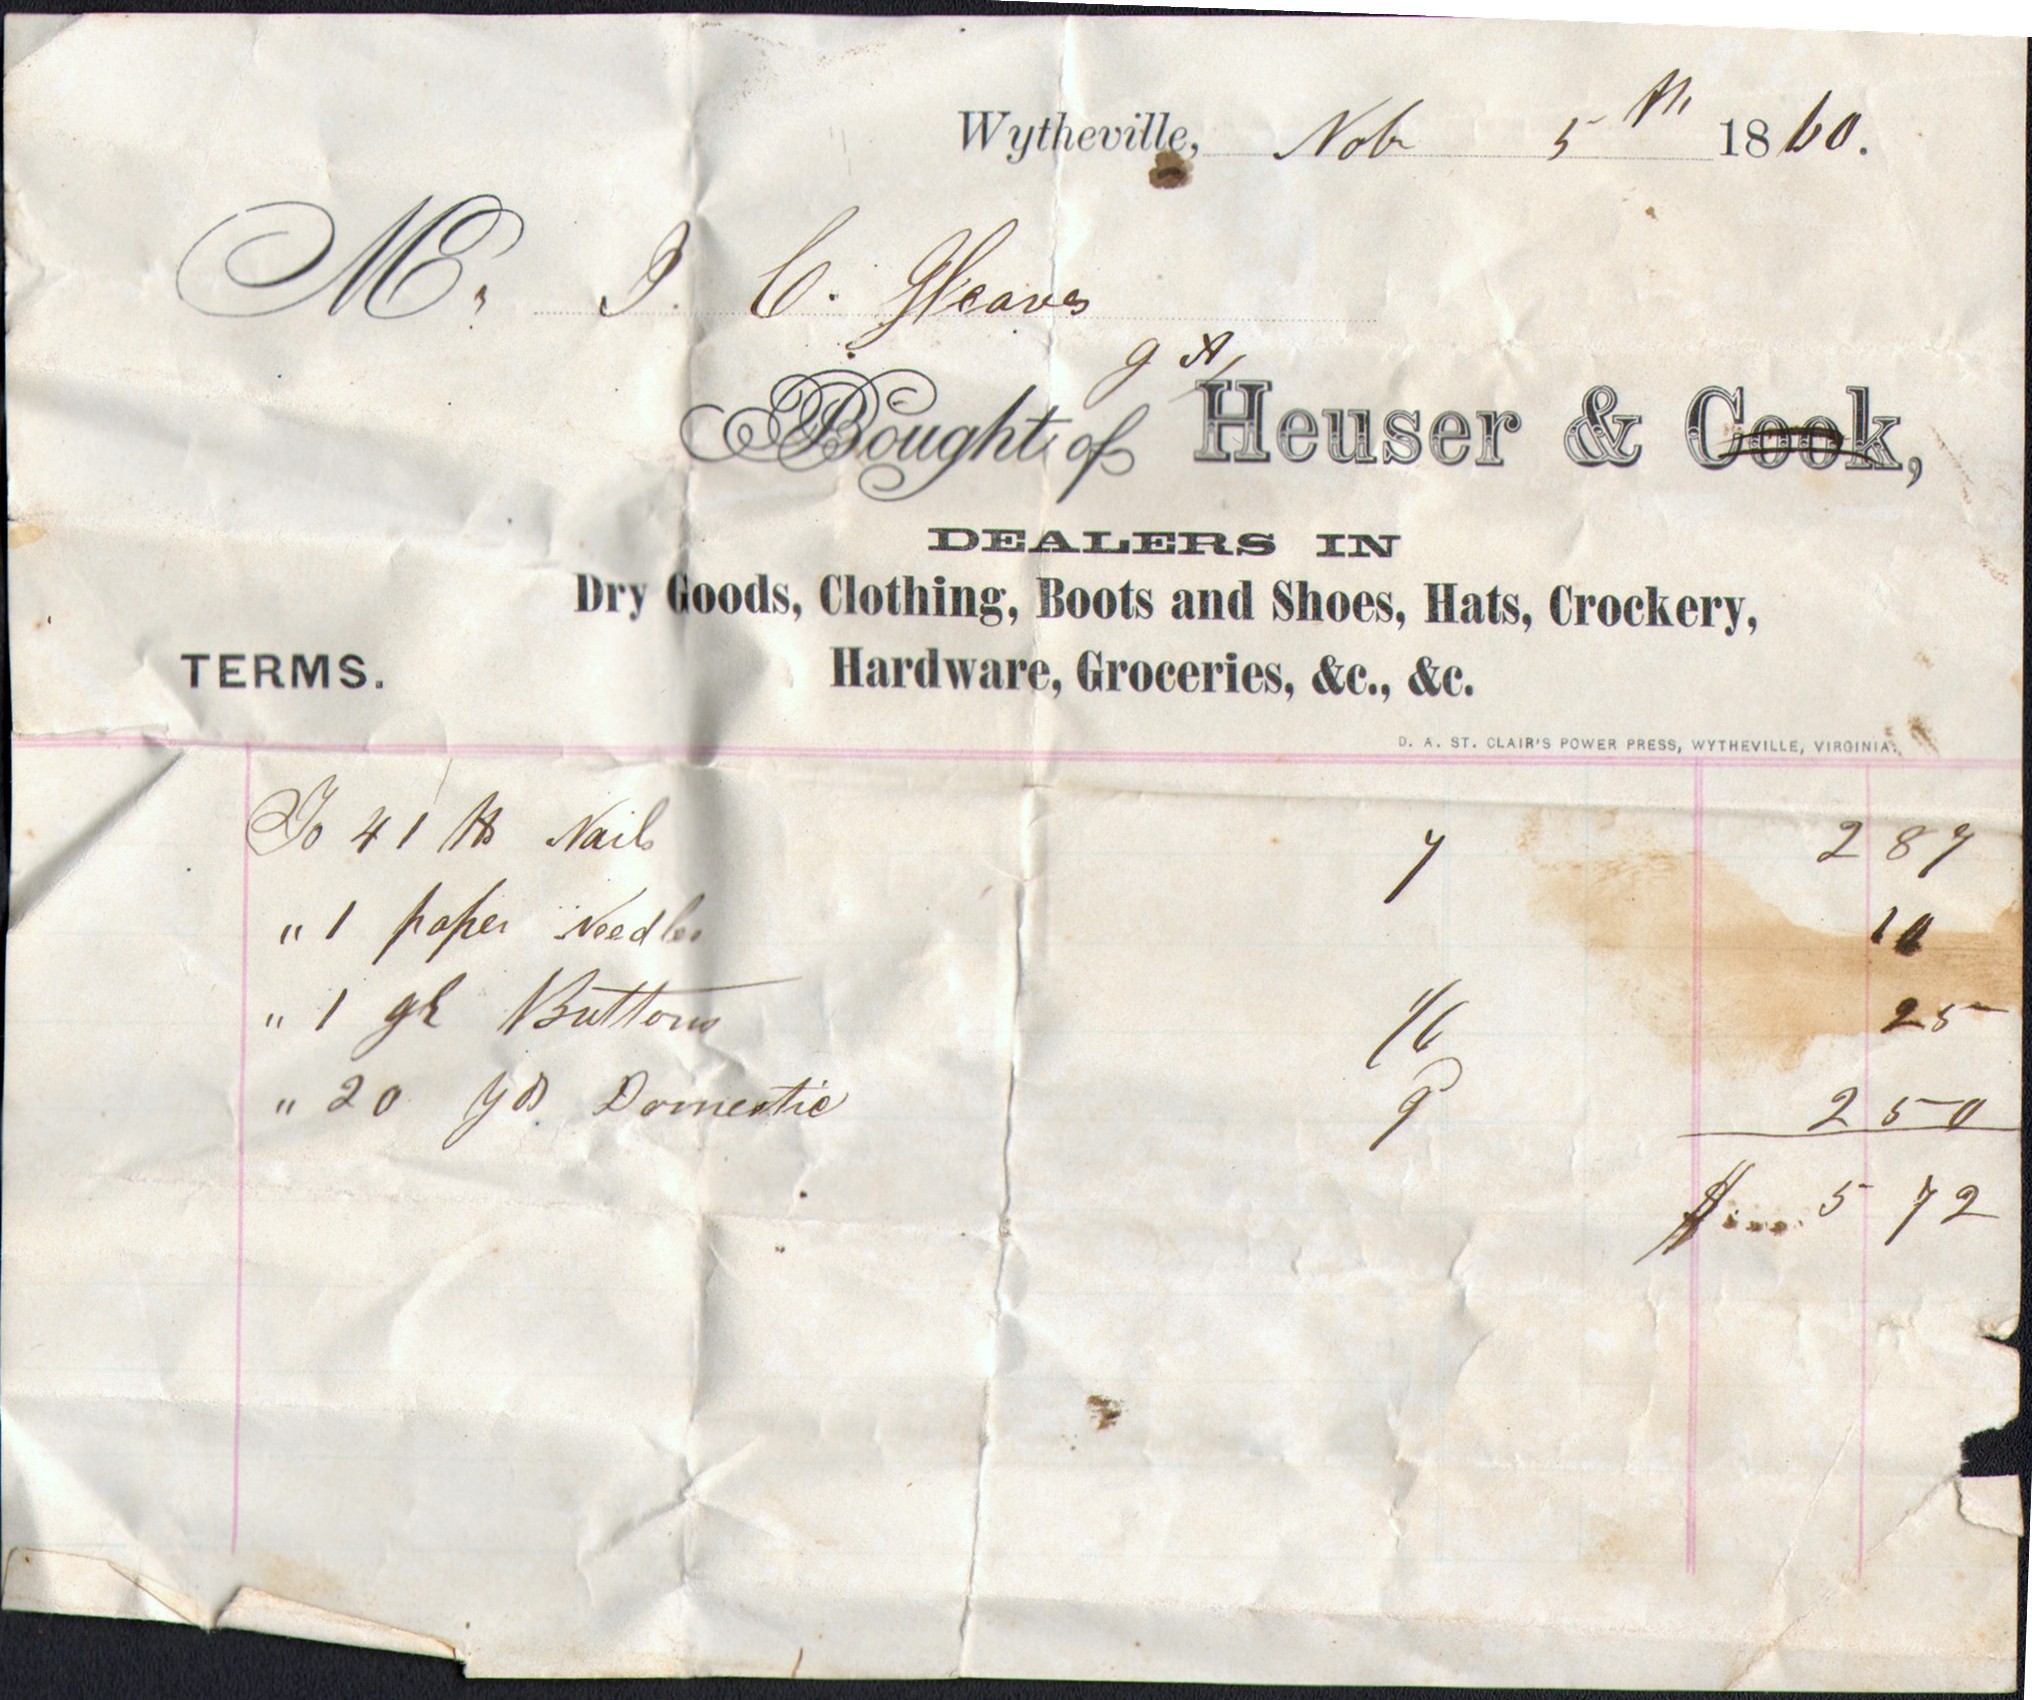 Wytheville, Nov 5th 1860.
M. J. C. Gleaves
Bought of Heuser & Cook,
DEALERS IN
Dry Goods, Clothing, Boots and Shoes, Hats, Crockery,
TERMS. Hardware, Groceries, &c., &c.
D. A. ST. CLAIR'S POWER PRESS, WYTHEVILLE, VIRGINIA.
To 41 lbs Nails 7 2 87
" 1 paper Needles 10
" 1 Buttons 1/6 25
" 20 yds Domestic 9d 2 50
$ 5 72